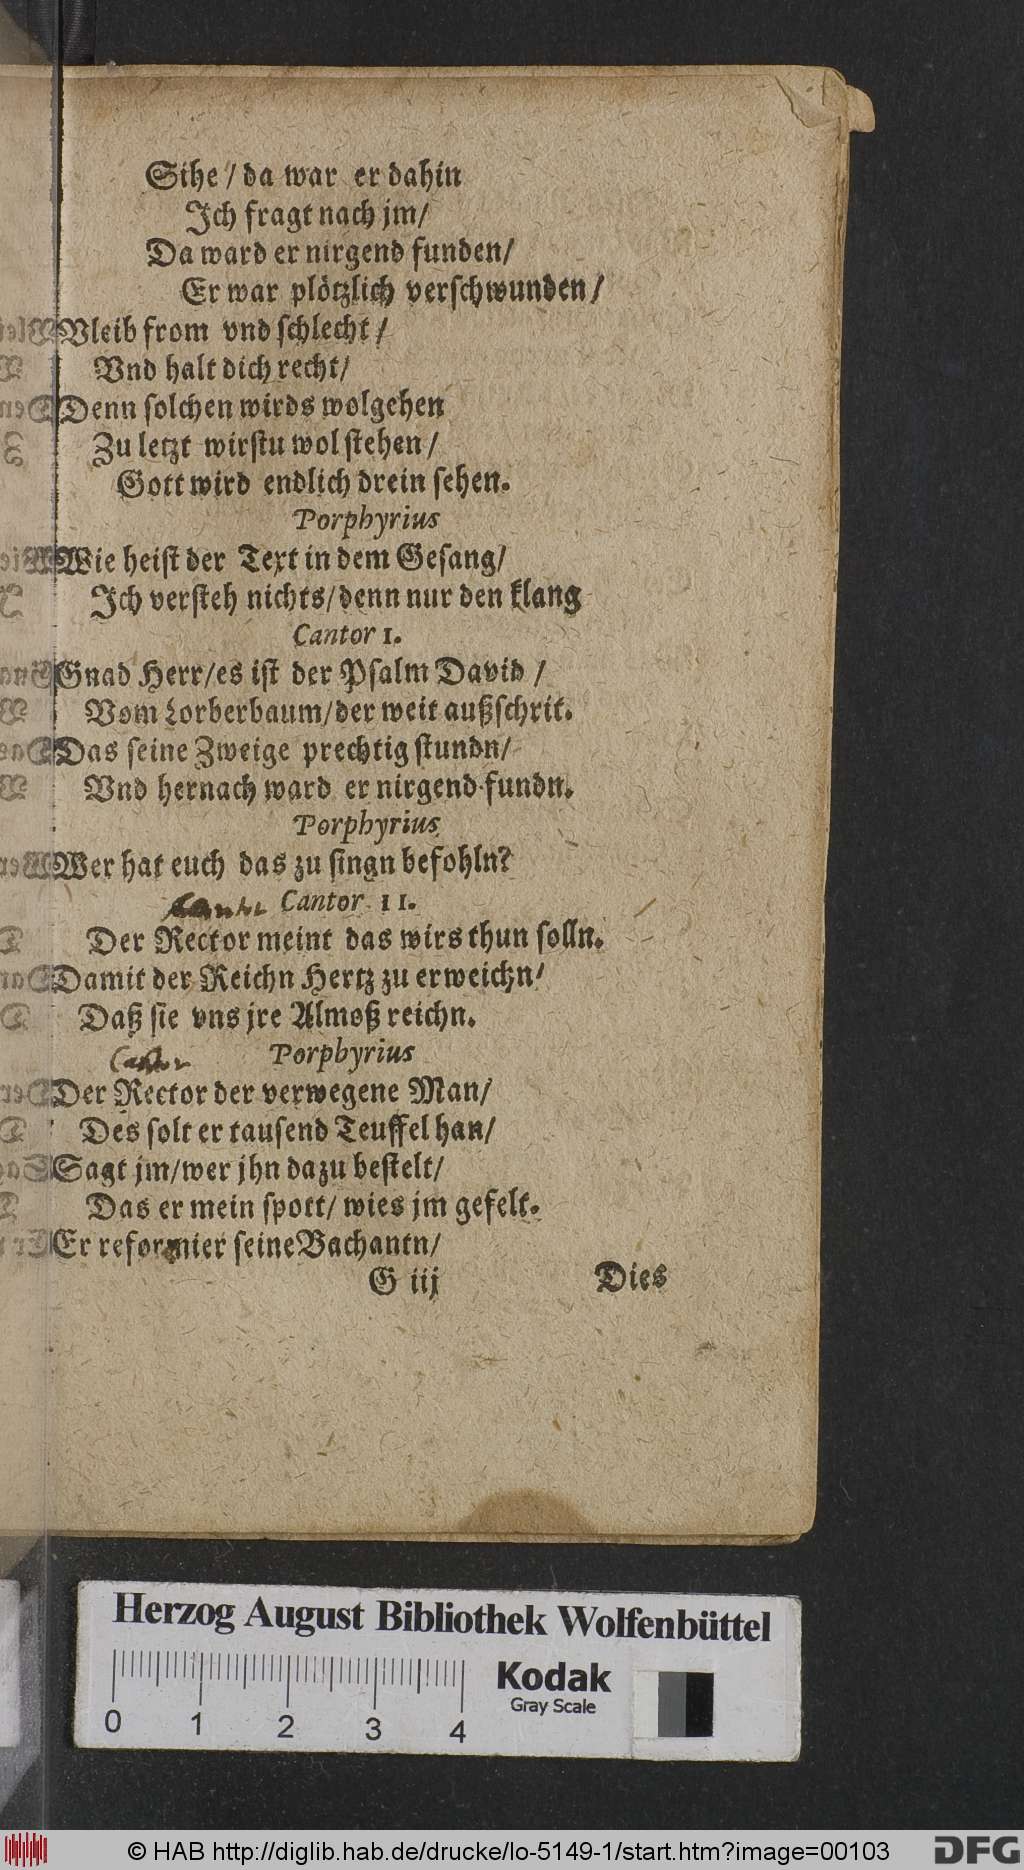 Sihe / da war er dahin
Ich fragt nach jm/
Da ward er nirgend funden/
Er war plötzlich verschwunden /
Bleib from vnd schlecht /
Vnd halt dich recht/
Denn solchen wirds wolgehen
Zu letzt wirstu wol stehen /
Gott wird endlich drein sehen.
Porphyrius
Wie heist der Text in dem Gesang/
Ich versteh nichts/denn nur den klang
Cantor 1.
Gnad Herr/es ist der Psalm David /
Vom Lorberbaum/der weit außschrit.
Das seine Zweige prechtig stundn/
Vnd hernach ward er nirgend fundn.
Porphyrius
Wer hat euch das zu singn befohln?
Cantor 11.
Der Rector meint das wirs thun solln.
Damit der Reichn Hertz zu erweichn/
Daß sie vns jre Almoß reichn.
Cantor Porphyrius
Der Rector der verwegene Man/
Des solt er tausend Teuffel han/
Sagt jm/wer jhn dazu bestelt/
Das er mein spott/ wies jm gefelt.
Er reformier seine Bachantn/
G iij Dies
Herzog August Bibliothek Wolfenbüttel
0 1 2 3 4
Kodak
Gray Scale
© HAB http://diglib.hab.de/drucke/lo-5149-1/start.htm?image=00103
DFG